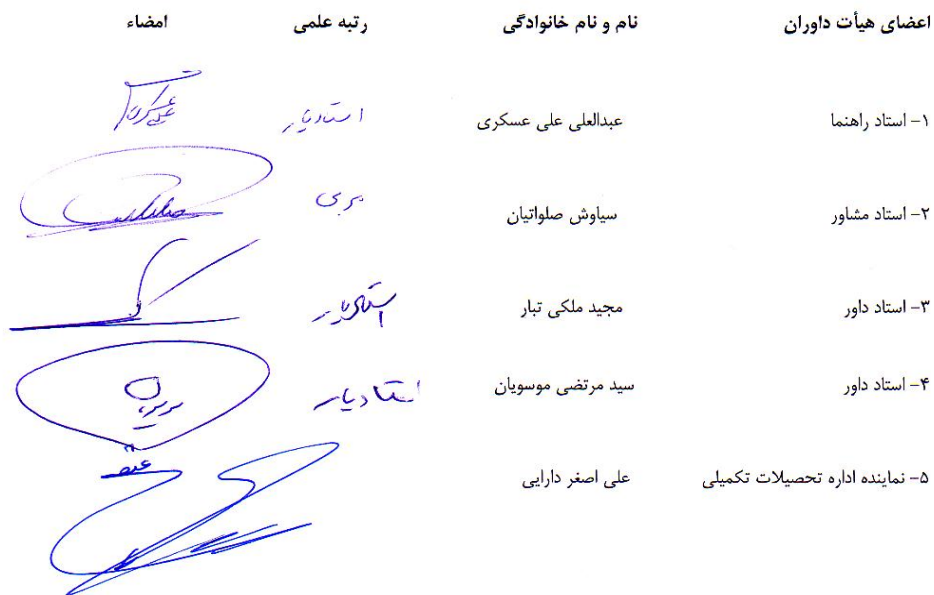 اعضای هیأت داوران نام و نام خانوادگی رتبه علمی امضاء
۱- استاد راهنما عبدالعلی علی عسکری استادیار
۲- استاد مشاور سیاوش صلواتیان مربی
۳- استاد داور مجید ملکی تبار استادیار
۴- استاد داور سید مرتضی موسویان استادیار
۵- نماینده اداره تحصیلات تکمیلی علی اصغر دارایی